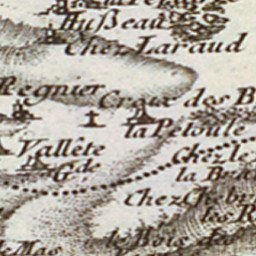 Hußeau
Chez Laraud
Regnier
Croix des B
la Petoule
Vallete
Gde
Chez le
la Bra
Chez
les R
le Bois des
le Mas